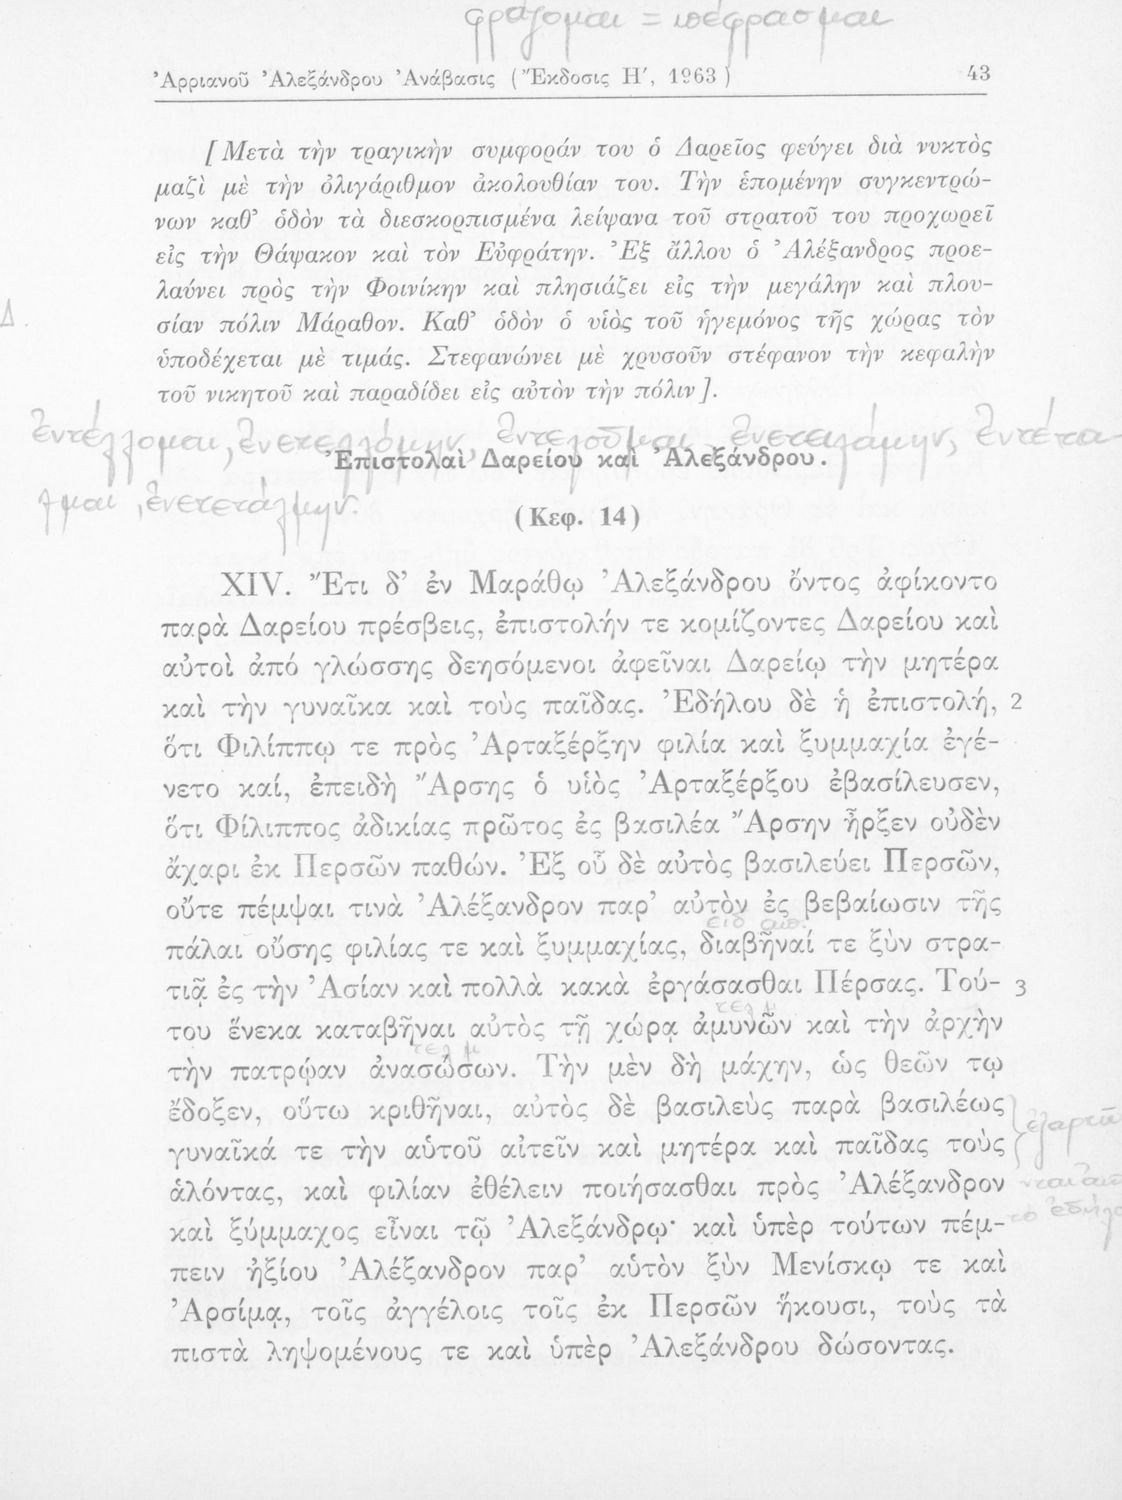 φράζομαι = πέφρασμαι
Ἀρριανοῦ Ἀλεξάνδρου Ἀνάβασις (Ἔκδοσις Η′, 1963) 43
[Μετὰ τὴν τραγικὴν συμφοράν του ὁ Δαρεῖος φεύγει διὰ νυκτὸς
μαζὶ μὲ τὴν ὀλιγάριθμον ἀκολουθίαν του. Τὴν ἑπομένην συγκεντρώ-
νων καθ᾿ ὁδὸν τὰ διεσκορπισμένα λείψανα τοῦ στρατοῦ του προχωρεῖ
εἰς τὴν Θάψακον καὶ τὸν Εὐφράτην. Ἐξ ἄλλου ὁ Ἀλέξανδρος προε-
λαύνει πρὸς τὴν Φοινίκην καὶ πλησιάζει εἰς τὴν μεγάλην καὶ πλου-
Δ.
σίαν πόλιν Μάραθον. Καθ᾿ ὁδὸν ὁ υἱὸς τοῦ ἡγεμόνος τῆς χώρας τὸν
ὑποδέχεται μὲ τιμάς. Στεφανώνει μὲ χρυσοῦν στέφανον τὴν κεφαλὴν
τοῦ νικητοῦ καὶ παραδίδει εἰς αὐτὸν τὴν πόλιν].
ἐντέλλομαι, ἐνετελλόμην, ἐντελοῦμαι, ἐνετειλάμην, ἐντέτα-
λμαι, ἐνετετάλμην.
Ἐπιστολαὶ Δαρείου καὶ Ἀλεξάνδρου.
(Κεφ. 14)
XIV. Ἔτι δ᾿ ἐν Μαράθῳ Ἀλεξάνδρου ὄντος ἀφίκοντο
παρὰ Δαρείου πρέσβεις, ἐπιστολήν τε κομίζοντες Δαρείου καὶ
αὐτοὶ ἀπό γλώσσης δεησόμενοι ἀφεῖναι Δαρείῳ τὴν μητέρα
καὶ τὴν γυναῖκα καὶ τοὺς παῖδας. Ἐδήλου δὲ ἡ ἐπιστολή, 2
ὅτι Φιλίππῳ τε πρὸς Ἀρταξέρξην φιλία καὶ ξυμμαχία ἐγέ-
νετο καί, ἐπειδὴ Ἄρσης ὁ υἱὸς Ἀρταξέρξου ἐβασίλευσεν,
ὅτι Φίλιππος ἀδικίας πρῶτος ἐς βασιλέα Ἄρσην ἦρξεν οὐδὲν
ἄχαρι ἐκ Περσῶν παθών. Ἐξ οὗ δὲ αὐτὸς βασιλεύει Περσῶν,
οὔτε πέμψαι τινὰ Ἀλέξανδρον παρ᾿ αὐτὸν ἐς βεβαίωσιν τῆς
πάλαι οὔσης φιλίας τε καὶ ξυμμαχίας, διαβῆναί τε ξὺν στρα-
τιᾷ ἐς τὴν Ἀσίαν καὶ πολλὰ κακὰ ἐργάσασθαι Πέρσας. Τού- 3
τελ μ
του ἕνεκα καταβῆναι αὐτὸς τῇ χώρᾳ ἀμυνῶν καὶ τὴν ἀρχὴν
τελ μ
τὴν πατρῴαν ἀνασώσων. Τὴν μὲν δὴ μάχην, ὡς θεῶν τῳ
ἔδοξεν, οὕτω κριθῆναι, αὐτὸς δὲ βασιλεὺς παρὰ βασιλέως
γυναῖκά τε τὴν αὑτοῦ αἰτεῖν καὶ μητέρα καὶ παῖδας τοὺς
ἁλόντας, καὶ φιλίαν ἐθέλειν ποιήσασθαι πρὸς Ἀλέξανδρον
καὶ ξύμμαχος εἶναι τῷ Ἀλεξάνδρῳ· καὶ ὑπὲρ τούτων πέμ-
πειν ἠξίου Ἀλέξανδρον παρ᾿ αὐτὸν ξὺν Μενίσκῳ τε καὶ
Ἀρσίμᾳ, τοῖς ἀγγέλοις τοῖς ἐκ Περσῶν ἥκουσι, τοὺς τὰ
πιστὰ ληψομένους τε καὶ ὑπὲρ Ἀλεξάνδρου δώσοντας.